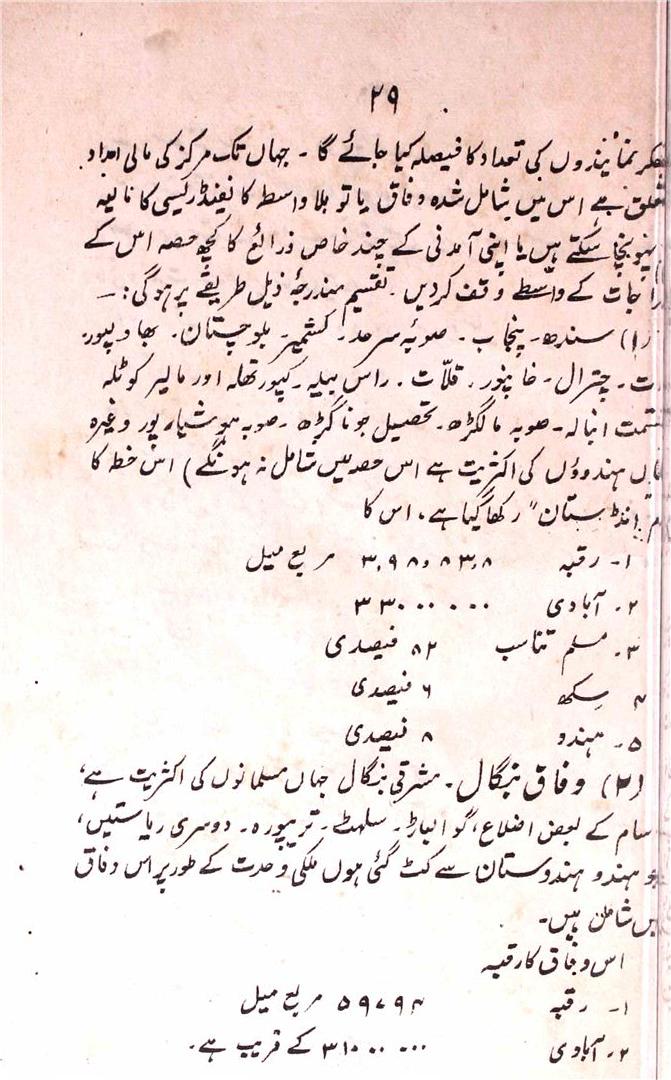 ۲۹
نمائندوں کی تعداد کا فیصلہ کیا جائے گا ۔ جہاں تک مرکز کی مالی امداد
تعلق ہے اس میں شامل شدہ وفاق یا تو بلا واسطہ کانفیڈریسی کا
پہونچا سکتے ہیں یا اپنی آمدنی کے چند خاص ذرائع کا کچھ حصہ اس کے
جات کے واسطے وقف کردیں ۔ تقسیم مندرجۂ ذیل طریقے پر ہوگی :۔
(۱) سندھ ۔ پنجاب ۔ صوبۂ سرحد ۔ کشمیر ۔ بلوچستان ۔ بھاولپور
چترال ۔ خانپور ۔ قلات ۔ راس بیلہ ۔ کپورتھلہ اور مالیر کوٹلہ
انبالہ ۔ صوبہ مالگڑھ ۔ تحصیل جونا گڑھ ۔ صوبہ ہوشیارپور وغیرہ
ہندوؤں کی اکثریت ہے اس حصہ میں شامل نہ ہونگے ) اس خطہ کا
رکھا گیا ہے ، اس کا
۱۔ رقبہ ۳،۹۸،۸۳،۸ مربع میل
۲۔ آبادی ۳۳۰۰۰۰۰۰
۳۔ مسلم تناسب ۸۲ فیصدی
۴ سکھ ۶ فیصدی
۵۔ ہندو ۸ فیصدی
(۲) وفاق بنگال ۔ مشرقی بنگال جہاں مسلمانوں کی اکثریت ہے،
کے بعض اضلاع، گوالپاڑہ ۔ سلہٹ ۔ تریپورہ ۔ دوسری ریاستیں،
جو ہندو ہندوستان سے کٹ گئی ہوں ملکی وحدت کے طور پر اس وفاق
میں شامل ہیں ۔
اس وفاق کا رقبہ
۱۔ رقبہ ۵۹۷۹۴ مربع میل
۲۔ آبادی ۳۱۰۰۰۰۰۰ کے قریب ہے ۔